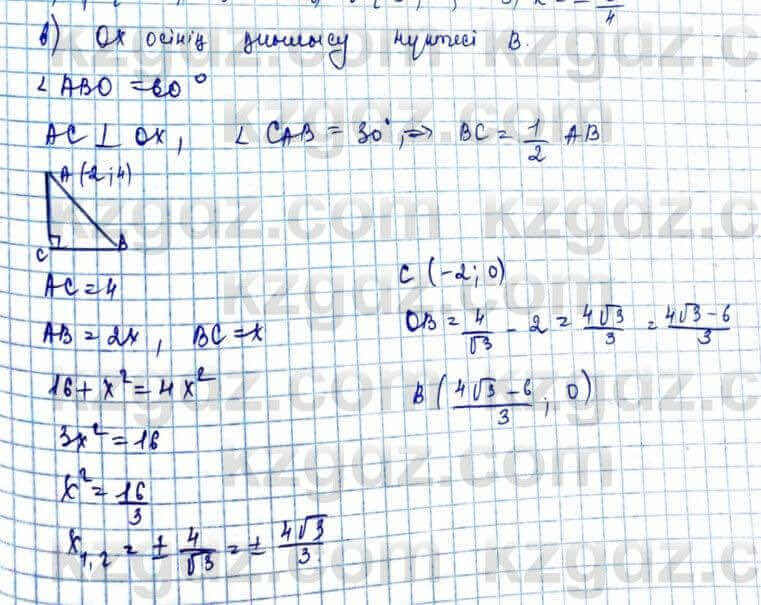 в) Ox осінің қиылысу нүктесі B.
∠ ABO = 60°
AC ⊥ OX, ∠ CAB = 30°, ⇒ BC = 1/2 AB
A (-2; 4)
C B
AC = 4
AB = 2x, BC = x
16 + x² = 4x²
3x² = 16
x² = 16/3
x₁,₂ = ± 4/√3 = ± 4√3/3
C (-2; 0)
OB = 4/√3 - 2 = 4√3/3 = 4√3-6/3
B (4√3-6/3; 0)
kzgdz.com